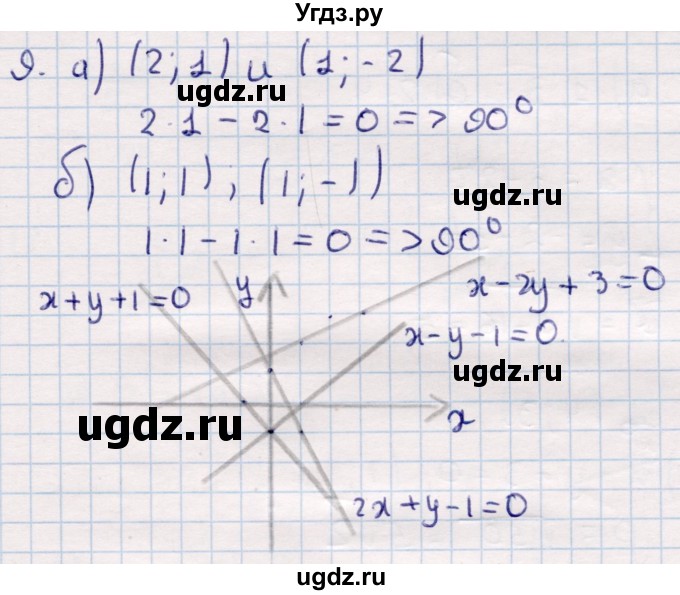 Угдз.ру
9. а) (2; 1) и (1; -2)
ugdz.ru
2·1 - 2·1 = 0 => 90°
б) (1; 1); (1; -1)
ugdz.ru
1·1 - 1·1 = 0 => 90°
x+y+1=0
y
x-2y+3=0
x-y-1=0.
ugdz.ru
ugdz.ru
x
2x+y-1=0
ugdz.ru